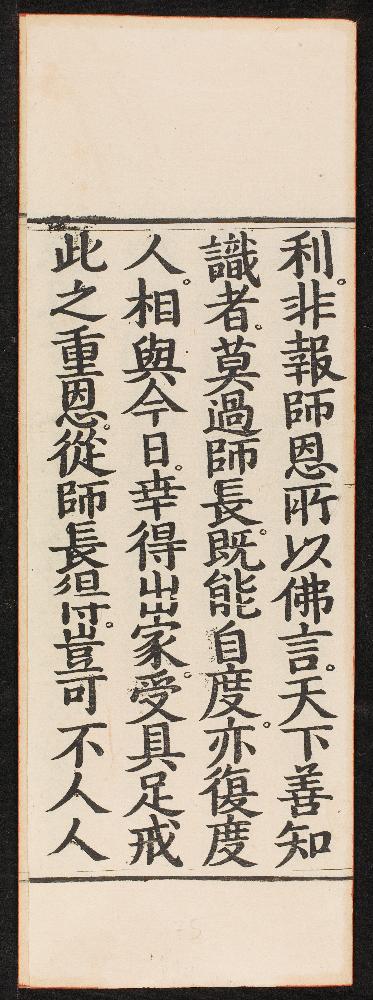 利。非報師恩所以佛言。天下善知
識者。莫過師長。既能自度。亦復度
人。相與今日。幸得出家。受具足戒
此之重恩。從師長得。豈可不人人